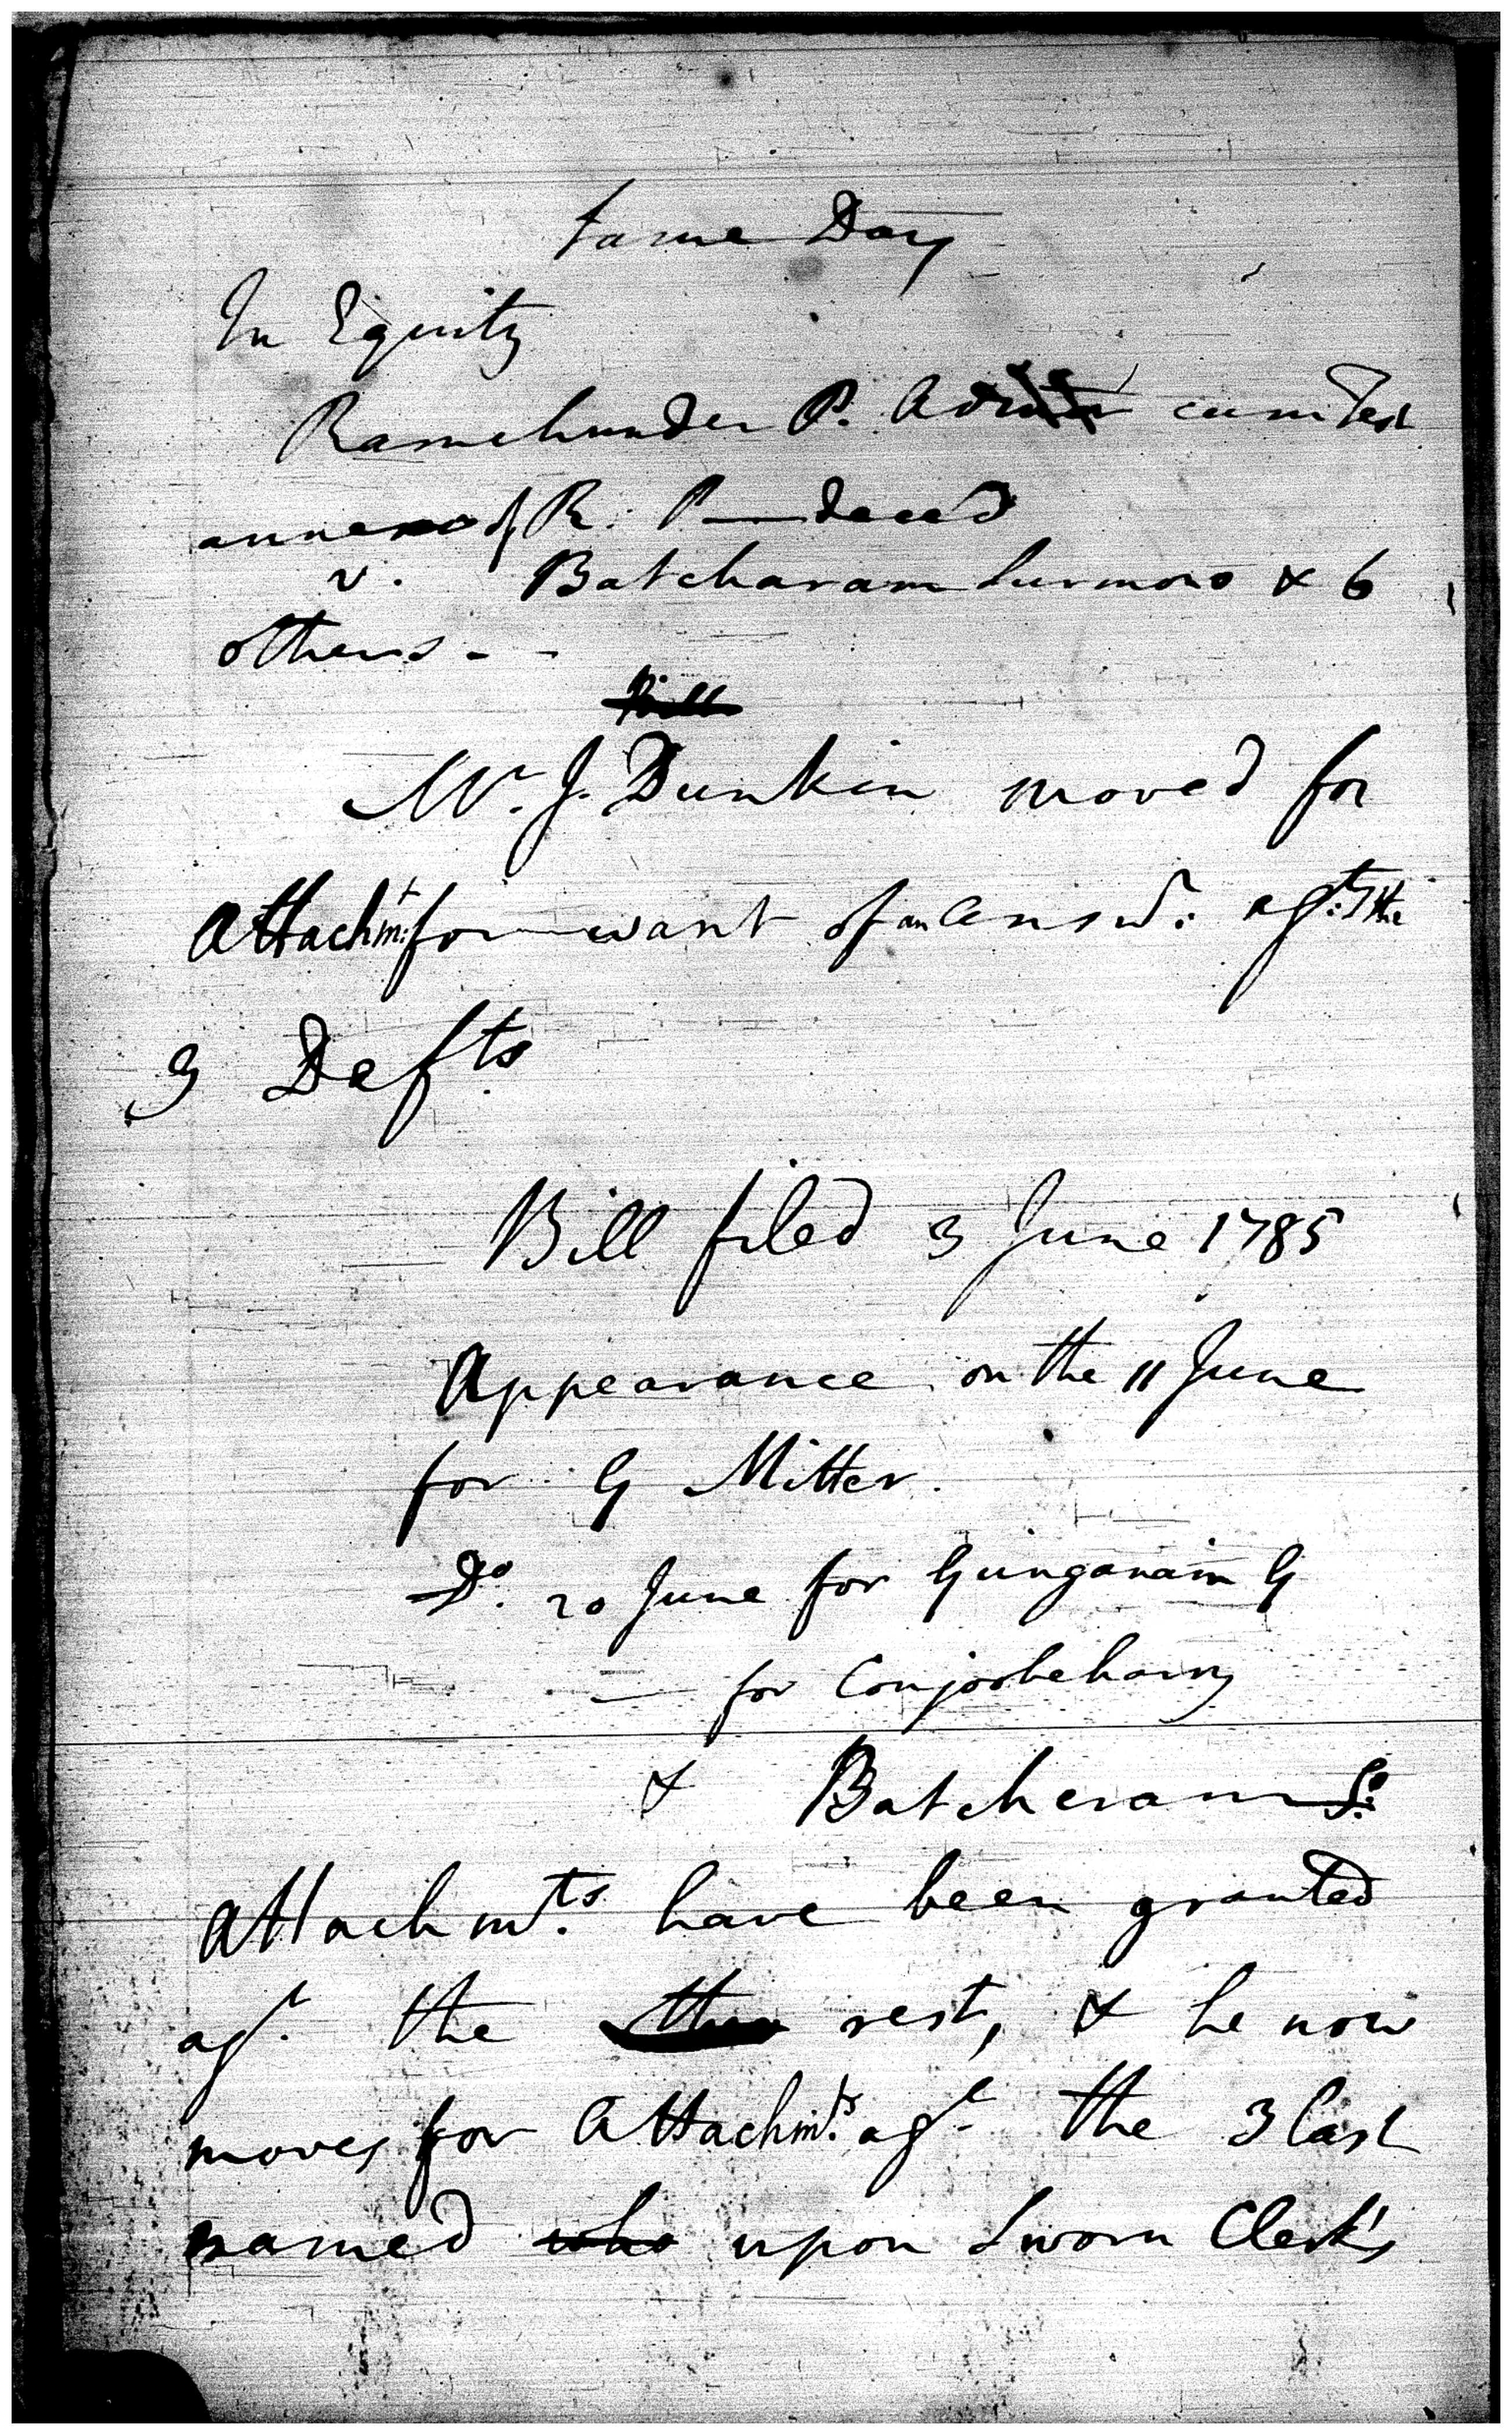 Same Day
In Equity
Ramchunder P. Admr cum Test
annexo of R. P—— deced
v. Batcharam Surmono & 6
others - -
Mr. J. Dunkin moved for
Attachmt: for want of an Answr: agt: the
3 Defts
Bill filed 3 June 1785
Appearance on the 11 June
for G Mitter.
Do. 20 June for Gunganarain G
— for Conjoobeharry
& Batcheram S:
Attachmts. have been granted
agt. the rest, & he now
moves for Attachmts. agt. the 3 last
named who upon Sworn Clerk's